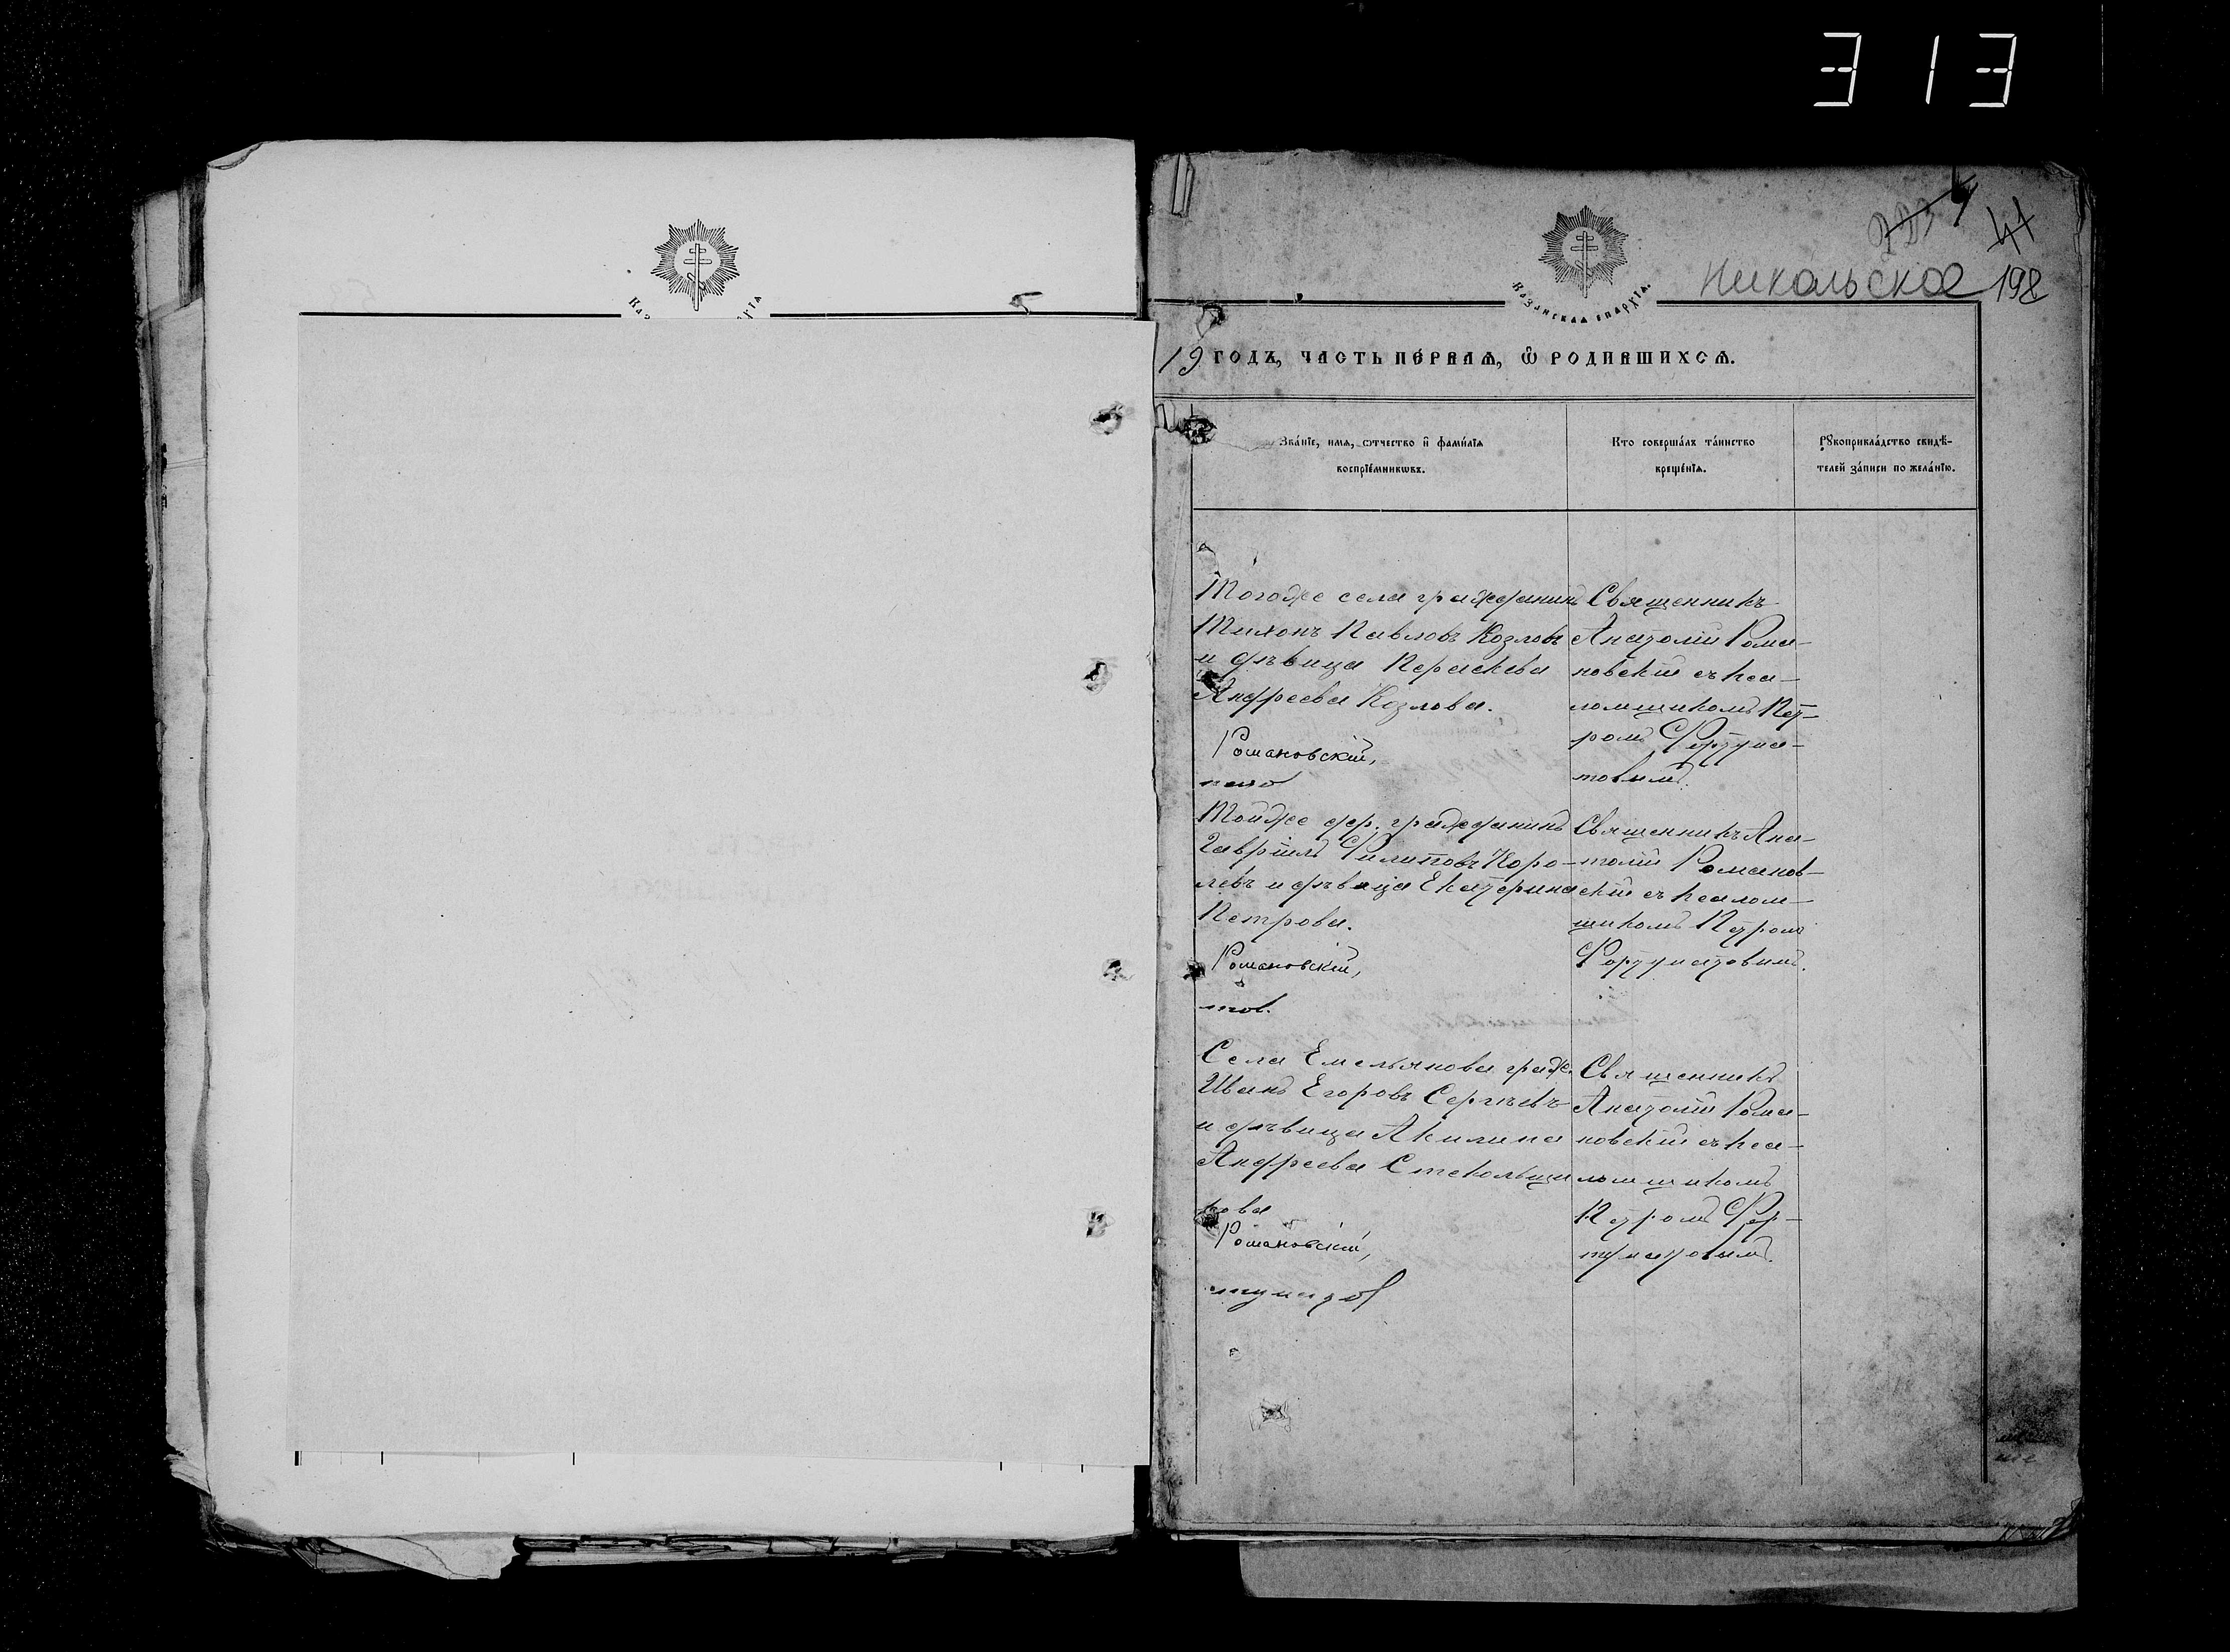 313
44
Никольское 198
КАЗАНСКАЯ ЕПАРХІЯ.
19 ГОДЪ, ЧАСТЬ ПЕ́РВАЯ, Ѡ҆ РОДИВШИХСЯ.
Зва́нїе, имѧ, ѻтчество и҆ фами́лїѧ
воспрїе́мникѡвъ.
Кто соверша́лъ та́инство
креще́нїѧ.
Рꙋкоприкла́дство свидѣ́-
телей за́писи по жела́нїю.
Тогоже села гражданинъ
Тихонъ Павловъ Козловъ
и дѣвица Параскева
Андреева Козлова.
Романовскій,
Священникъ
Анатолій Рома-
новскій съ пса-
ломщикомъ Пет-
ромъ Фортуна-
товымъ.
Тойже дер. гражданинъ
Гавріилъ Филиповъ Коро-
левъ и дѣвица Екатерина
Петрова.
Романовскій,
тов.
Священникъ Ана-
толій Романов-
скій съ псалом-
щикомъ Петромъ
Фортунатовымъ.
Села Емельянова граж.
Иванъ Егоровъ Сергѣевъ
и дѣвица Акилина
Андреева Стекольщи
кова
Романовскій,
тунатов
Священникъ
Анатолій Рома-
новскій съ пса-
ломщикомъ
Петромъ Фор-
тунатовымъ.